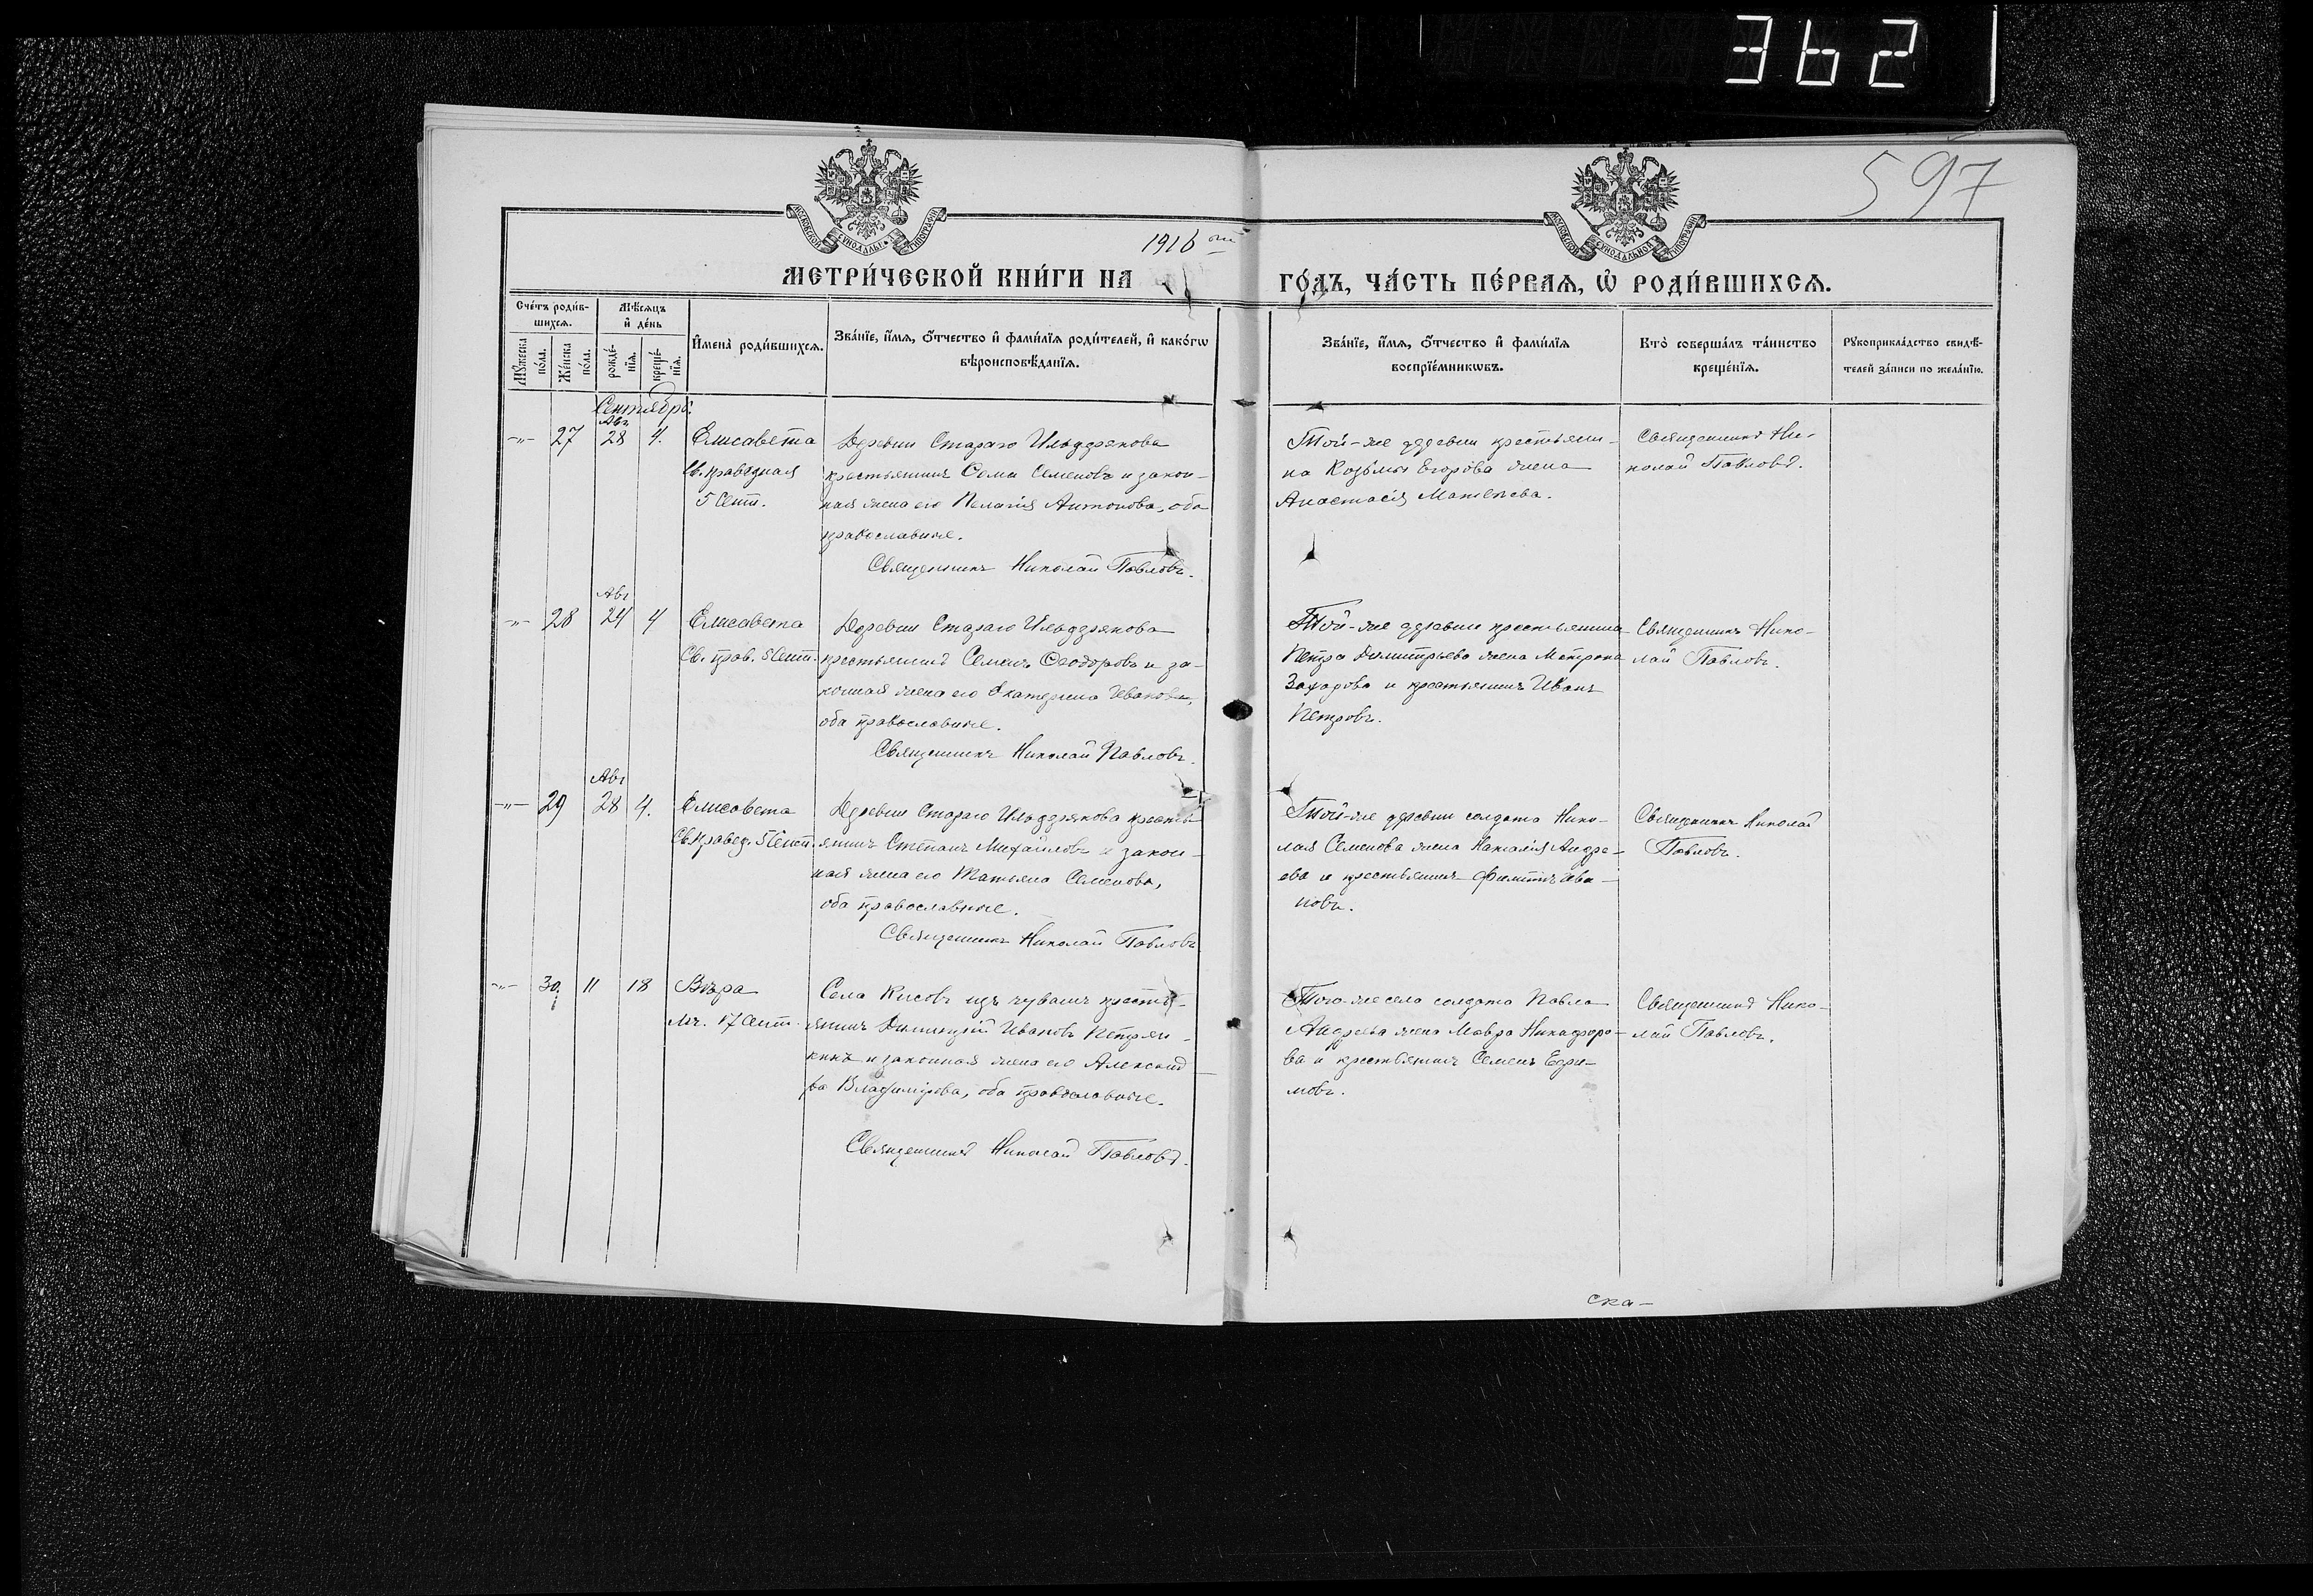 362
597
МОСКОВСКОЙ СѴНОДАЛЬНОЙ ТИПОГРАФІИ
МОСКОВСКОЙ СѴНОДАЛЬНОЙ ТИПОГРАФІИ
1916 ый
МЕТРИ́ЧЕСКОЙ КНИ́ГИ НА ГО́ДЪ, ЧА́СТЬ ПЕ́РВАѦ, Ѡ҆ РОДИ́ВШИХСѦ.
Сче́тъ роди́в-
шихсѧ.
Мꙋ́жеска
по́ла.
Же́нска
по́ла.
Мѣ́сѧцъ
и҆ де́нь
рожде́-
нїѧ.
креще́-
нїѧ.
И҆мена̀ роди́вшихсѧ.
Зва́нїе, и҆́мѧ, ѻ҆́тчество и҆ фами́лїѧ роди́телей, и҆ како́гѡ
вѣроисповѣ́данїѧ.
Зва́нїе, и҆́мѧ, ѻ҆́тчество и҆ фами́лїѧ
воспрїе́мникѡвъ.
Кто̀ соверша́лъ та́инство
креще́нїѧ.
Рꙋкоприкла́дство свидѣ́-
телей за́писи по жела́нїю.
Сентябрь.
Авг.
-"- 27 28 4.
Елисавета
Св. праведная
5 Сент.
Деревни Стараго Ильдрякова
крестьянинъ Сема Семеновъ и закон-
ная жена его Пелагія Антонова, оба
православные.
Священникъ Николай Павловъ.
Той-же деревни крестьяни-
на Козьмы Егорова жена
Анастасія Матвѣева.
Священникъ Ни-
колай Павловъ.
Авг
-"- 28 24 4
Елисавета
Св. прав. 5 Сент.
Деревни Стараго Ильдрякова
крестьянинъ Семенъ Ѳеодоровъ и за-
конная жена его Екатерина Иванова,
оба православные.
Священникъ Николай Павловъ.
Той-же деревни крестьянина
Петра Димитрьева жена Матрона
Захарова и крестьянинъ Иванъ
Петровъ.
Священникъ Нико-
лай Павловъ.
Авг
-"- 29 28 4.
Елисавета
Св. Правед. 5 Сент.
Деревни Стараго Ильдрякова кресть-
янинъ Степанъ Михайловъ и закон-
ная жена его Татьяна Семенова,
оба православные.
Священникъ Николай Павловъ
Той-же деревни солдата Нико-
лая Семенова жена Наталія Андре-
ева и крестьянинъ Филиппъ Ива-
новъ.
Священникъ Николай
Павловъ.
-"- 30. 11 18
Вѣра
мч. 17 Сент.
Села изъ чувашъ кресть-
янинъ Димитрій Ивановъ Петрян-
кинъ и законная жена его Александ-
ра Владимірова, оба православные.
Священникъ Николай Павловъ.
Того-же села солдата Павла
Андреева жена Мавра Никафоро-
ва и крестьянинъ Семенъ Ефи-
мовъ.
Священникъ Нико-
лай Павловъ.
ска-